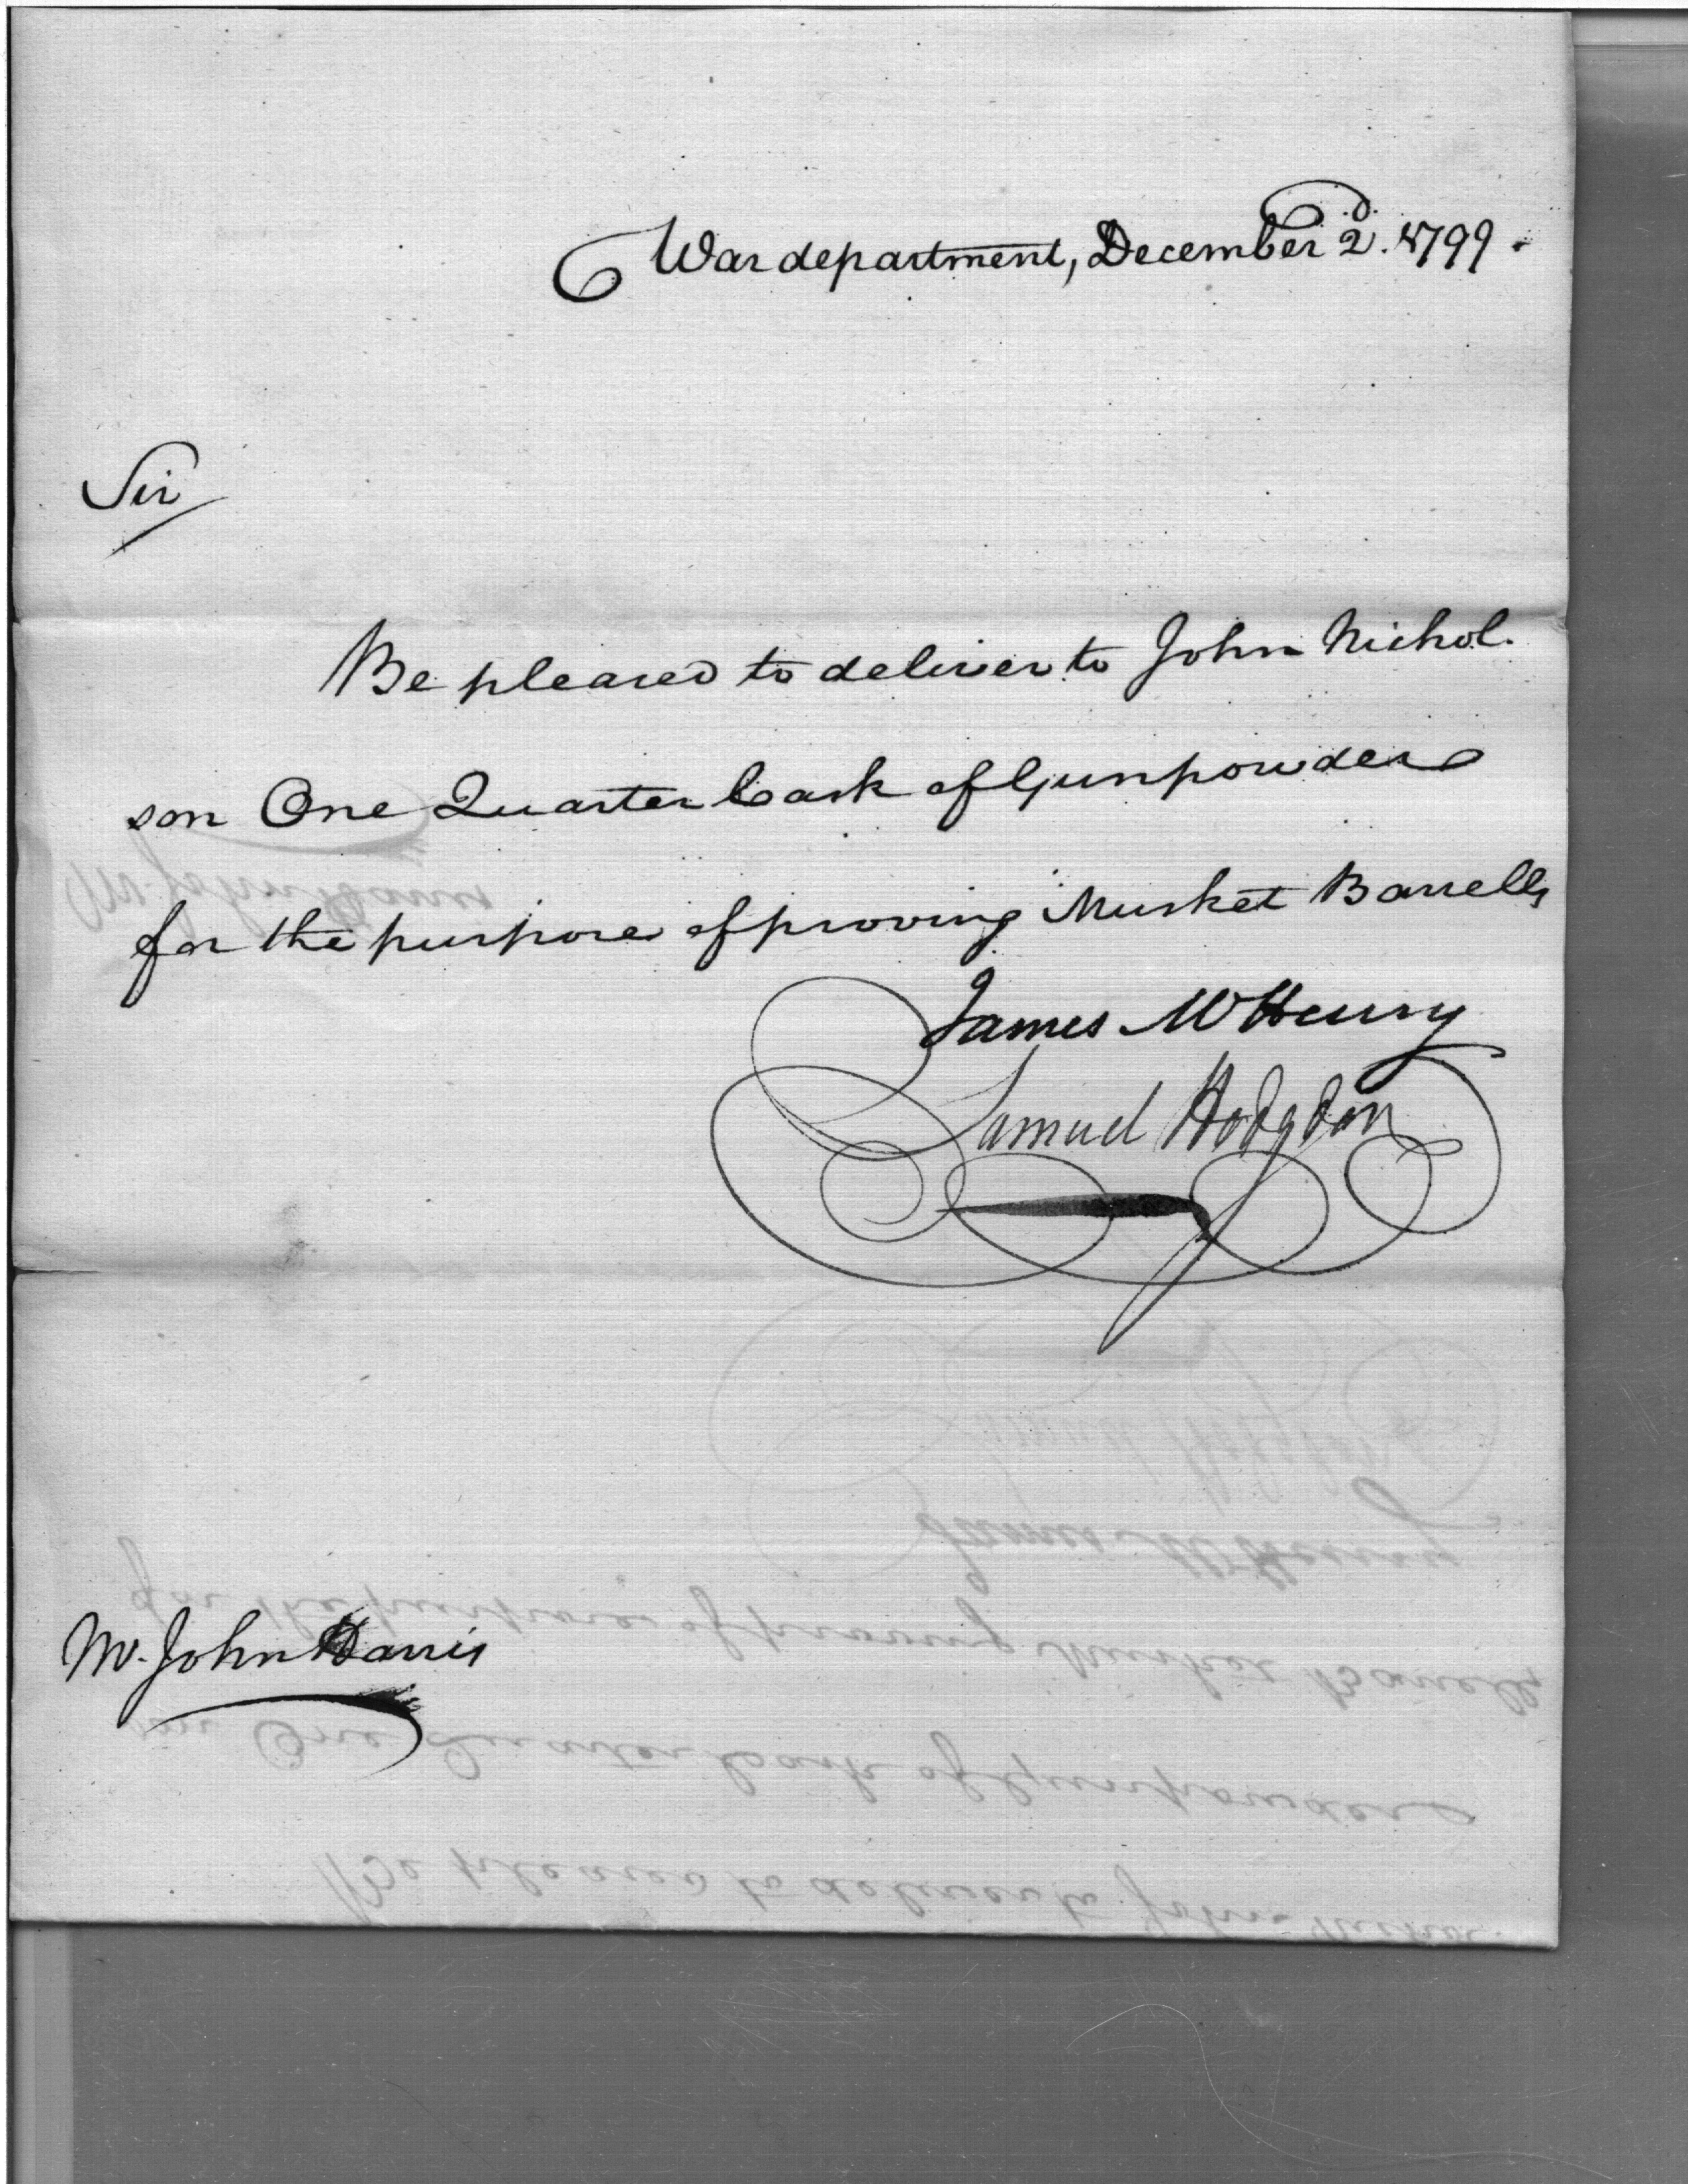 War department, December 2d. 1799.
Sir
Be pleased to deliver to John Nichol-
son One Quarter Cask of Gunpowder
for the purpose of proving Musket Barrells
James McHenry
Samuel Hodgdon
Mr. John Harris